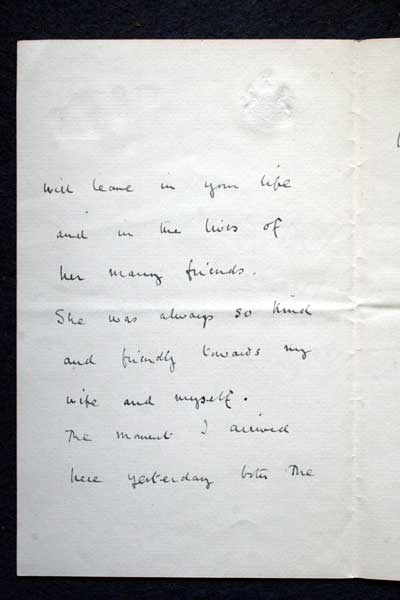 will leave in your life
and in the lives of
her many friends.
She was always so kind
and friendly towards my
wife and myself.
The moment I arrived
here yesterday both the